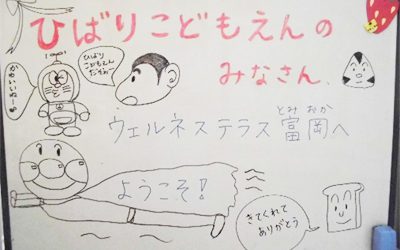 ひばりこどもえんの
みなさん、
かわいいねー
ひばり
こどもえん
だぞぉ〜
とみ おか
ウェルネステラス富岡へ
ようこそ!
きてくれて
ありがとう